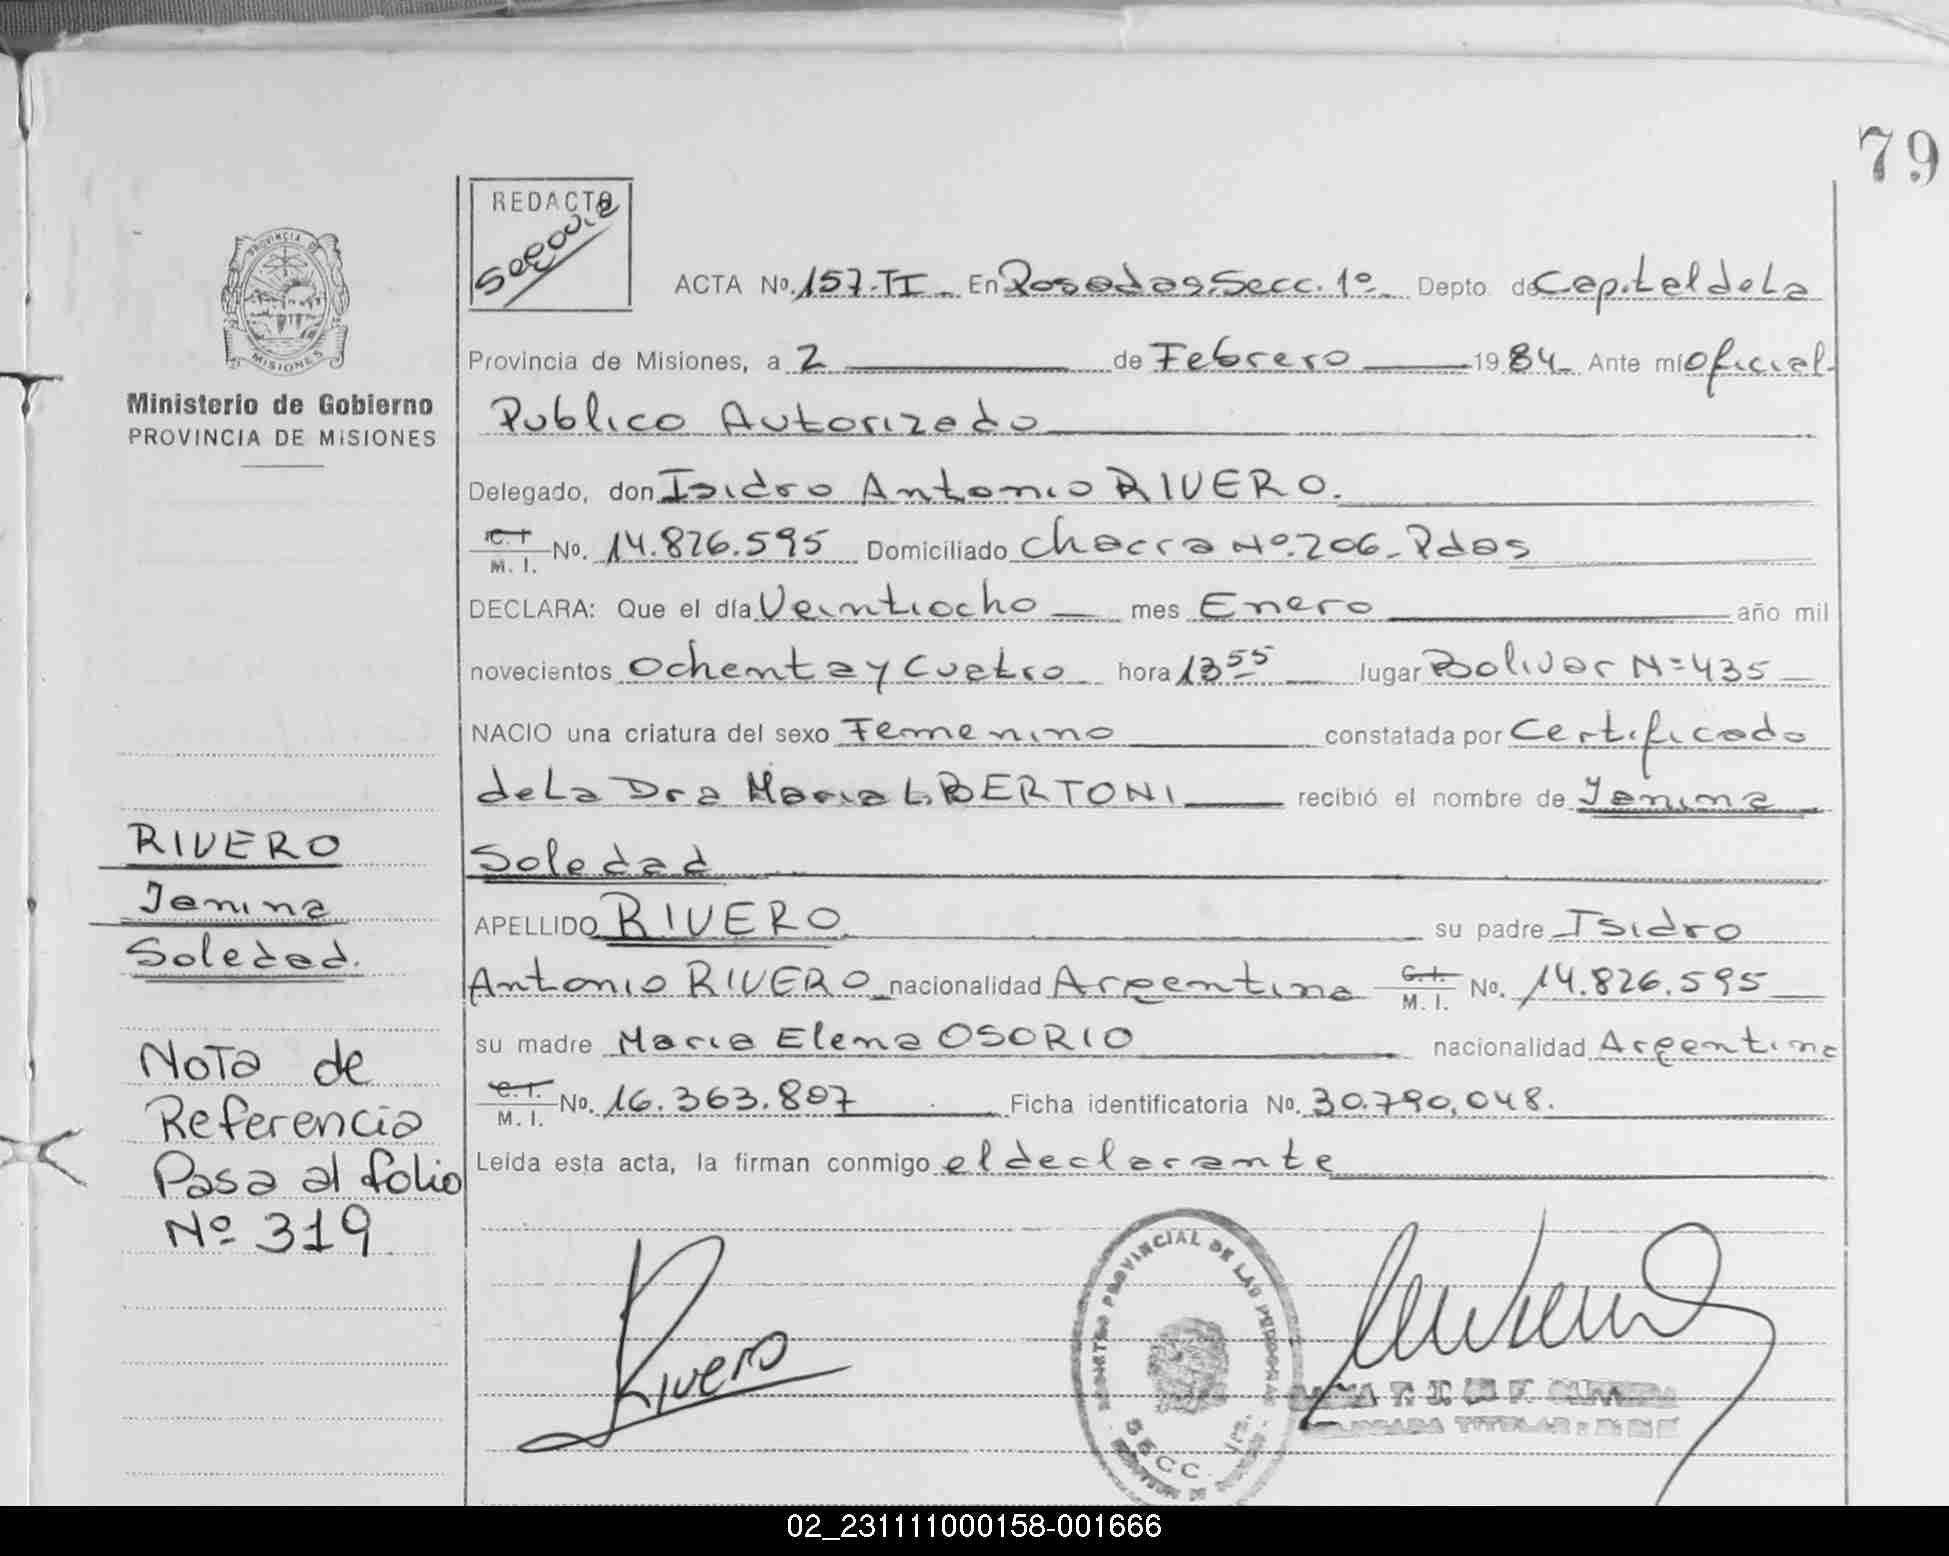 79
REDACTO
Segovia
PROVINCIA DE
MISIONES
Ministerio de Gobierno
PROVINCIA DE MISIONES
ACTA Nº. 157-TI En Posadas, Secc. 1º Depto de Capital de La
Provincia de Misiones, a 2 de Febrero 1984 Ante mí Oficial
Publico Autorizado
Delegado, don Isidro Antonio RIVERO.
C.I. M. I. No. 14.826.595 Domiciliado Chacra Nº. 206 - Pdas
DECLARA: Que el día Veintiocho mes Enero año mil
novecientos Ochenta y Cuatro hora 13 55 lugar Bolivar Nº 435
NACIO una criatura del sexo Femenino constatada por Certificado
de La Dra Maria L. BERTONI recibió el nombre de Janina
Soledad
APELLIDO RIVERO su padre Isidro
Antonio RIVERO nacionalidad Argentina C.I. M. I. No. 14.826.595
su madre Maria Elena OSORIO nacionalidad Argentina
C.I. M. I. No. 16.363.807 Ficha identificatoria No. 30.790.048.
Leída esta acta, la firman conmigo el declarante
RIVERO
Janina
Soledad.
Nota de
Referencia
Pasa al folio
Nº 319
Rivero
REGISTRO PROVINCIAL DE LAS PERSONAS
SECC. 1ra.
DELEGADA TITULAR
02_231111000158-001666